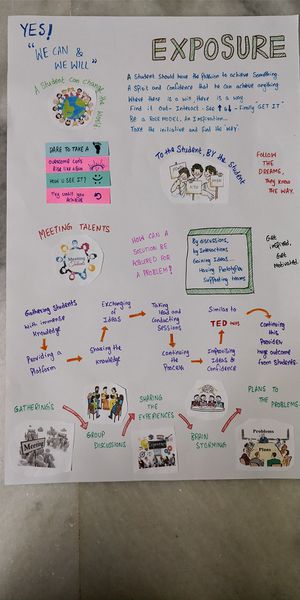 YES!
"WE CAN &
WE WILL"
A Student Can Change the World
EXPOSURE
A Student Should have the Passion to achieve Something.
A Spirit and Confidence that he can achieve anything
Where there is a will there is a way
Find it out - Interact - See ↑↓ - Finally "GET IT"
Be a ROLE MODEL, An Inspiration...
Take the initiative and find the 'WAY'
DARE TO TAKE A
OVERCOME LOTS
RISE like a SUN
HOW U SEE IT?
The credit you
ACHIEVE
To the Student, By the Student
FOLLOW
THE
DREAMS,
They know
THE WAY.
MEETING TALENTS
HOW CAN A
SOLUTION BE
ACQUIRED FOR
A PROBLEM?
By discussions,
by Interactions,
Gaining Ideas...
Having Prototypes
Supporting teams
Get
inspired,
Get
Motivated.
Gathering Students
with immense
knowledge
Providing a
Platform
Sharing the
Knowledge
Exchanging
of
IDEAS
Taking
lead and
Conducting
SESSIONS
Continuing
the
PROCESS
Similar to
TED
Improvising
Ideas &
Confidence
Continuing
this
Provides
huge outcome
from Students.
GATHERING'S
Meeting
GROUP
DISCUSSIONS
SHARING
THE
EXPERIENCES
BRAIN
STORMING
PLANS TO
THE
PROBLEMS.
Problems
Plans